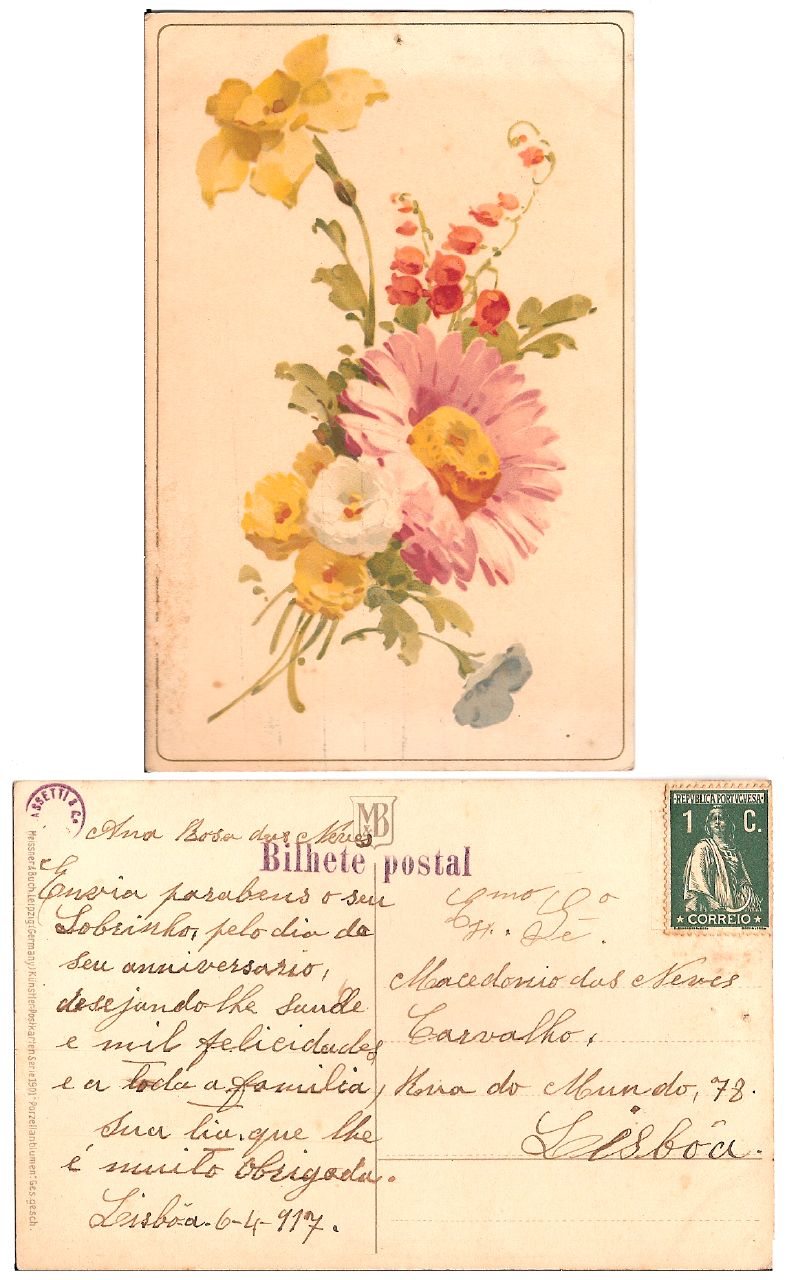 ASSETTI & Cº
Meissner & Buch, Leipzig (Germany) Künstler-Postkarten Serie 1901 "Porzellanblumen" Ges. gesch.
M&B
Bilhete postal
REPUBLICA PORTUGUESA
1 C.
CORREIO
Ana Rosa das Neves
Envia parabens o seu
Sobrinho, pelo dia do
seu anniversario,
desejando-lhe saude
e mil felicidades,
e a toda a familia,
sua tia, que lhe
é muito obrigada.
Lisbôa. 6-4-917.
Exmo
Macedonio das Neves
Carvalho,
Rua do Mundo, 78.
Lisbôa.